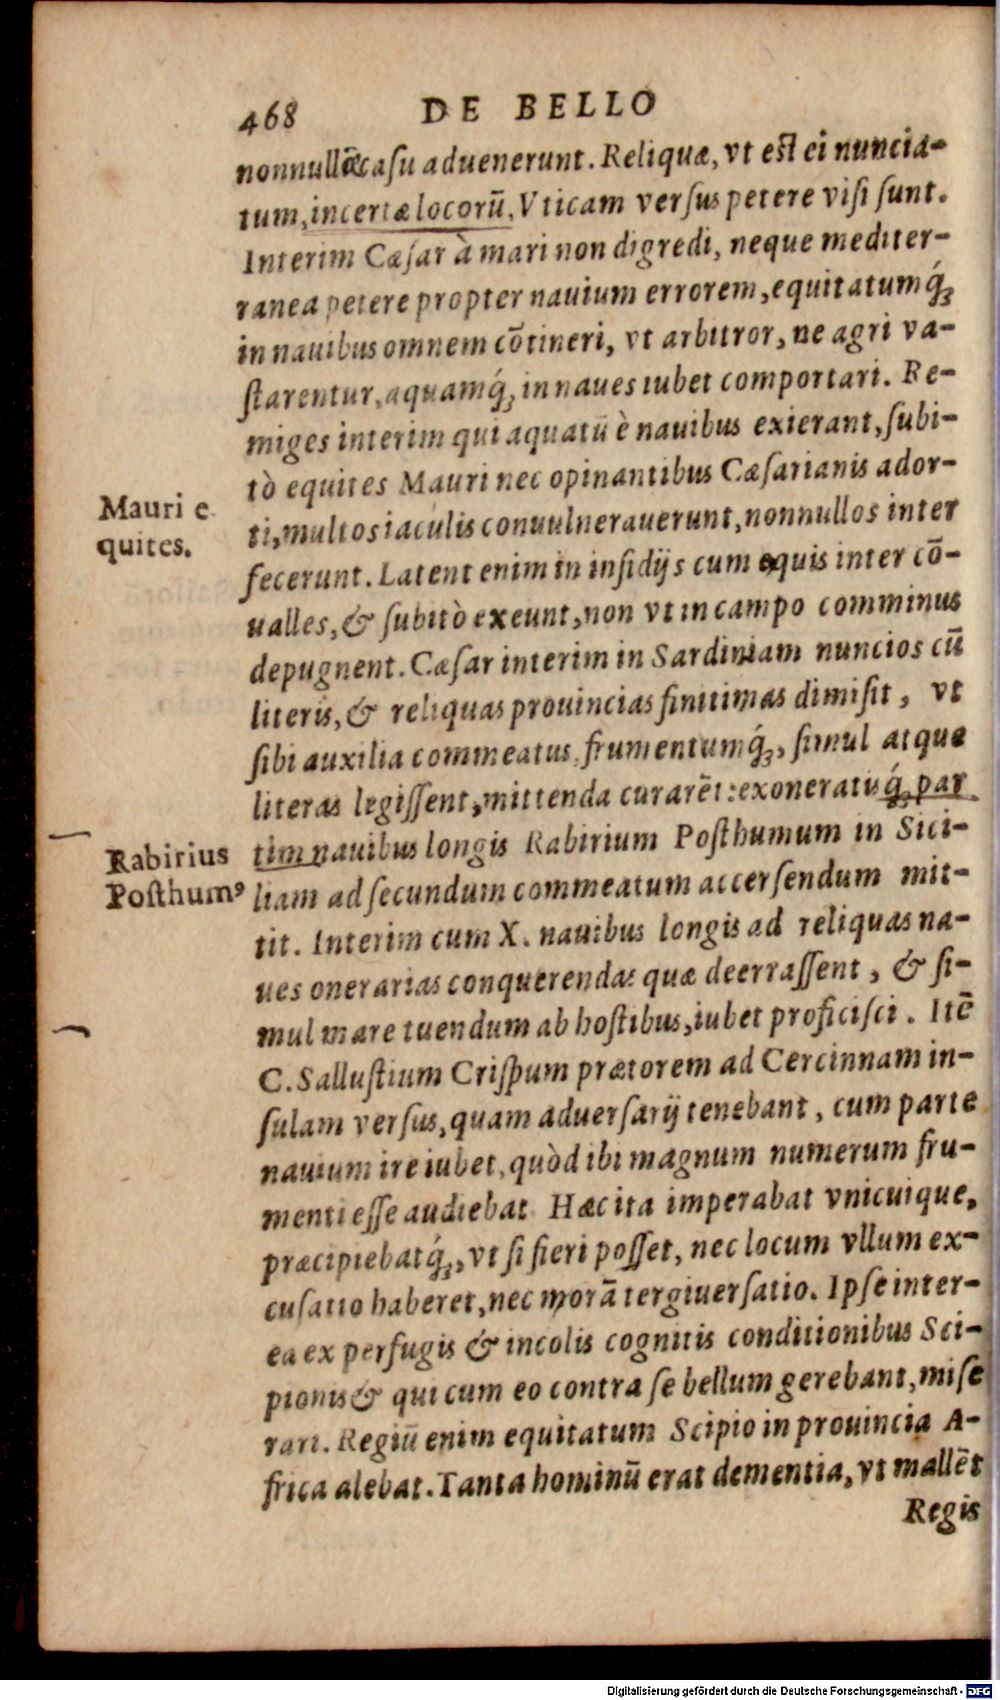 468 DE BELLO
nonnullæ casu aduenerunt. Reliquæ, vt est ei nuncia-
tum, incertæ locorū, Vticam versus petere visi sunt.
Interim Cæsar à mari non digredi, neque mediter-
ranea petere propter nauium errorem, equitatumq́;
in nauibus omnem cōtineri, vt arbitror, ne agri va-
starentur, aquamq́; in naues iubet comportari. Re-
miges interim qui aquatū è nauibus exierant, subi-
tò equites Mauri nec opinantibus Cæsarianis ador-
Mauri e
quites.
ti, multos iaculis conuulnerauerunt, nonnullos inter
fecerunt. Latent enim in insidijs cum equis inter cō-
ualles, & subitò exeunt, non vt in campo comminus
depugnent. Cæsar interim in Sardiniam nuncios cū
literis, & reliquas prouincias finitimas dimisit, vt
sibi auxilia commeatus, frumentumq́;, simul atque
literas legissent, mittenda curarēt: exoneratisq́; par
tim nauibus longis Rabirium Posthumum in Sici-
Rabirius
Posthumꝰ
liam ad secundum commeatum accersendum mit-
tit. Interim cum X. nauibus longis ad reliquas na-
ues onerarias conquerendas quæ deerrassent, & si-
mul mare tuendum ab hostibus, iubet proficisci. Itē
C. Sallustium Crispum prætorem ad Cercinnam in-
sulam versus, quam aduersarij tenebant, cum parte
nauium ire iubet, quòd ibi magnum numerum fru-
menti esse audiebat Hæc ita imperabat vnicuique,
præcipiebatq́;, vt si fieri posset, nec locum vllum ex-
cusatio haberet, nec morā tergiuersatio. Ipse inter-
ea ex perfugis & incolis cognitis conditionibus Sci-
pionis & qui cum eo contra se bellum gerebant, mise
rari. Regiū enim equitatum Scipio in prouincia A-
frica alebat. Tanta hominū erat dementia, vt mallēt
Regis
Digitalisierung gefördert durch die Deutsche Forschungsgemeinschaft - DFG